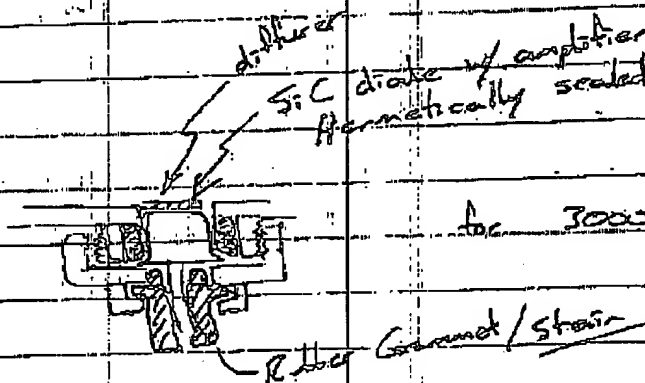 diffuser
SiC diode w/ amplifier
Hermetically sealed
for 3000
Rubber Grommet / Strain